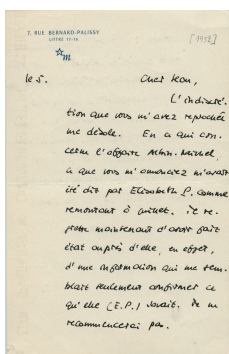 7, RUE BERNARD-PALISSY
LITTRÉ 17-16
[1952]
m
le 5.
Cher Jean,
L'indiscré-
tion que vous m'avez reprochée
me désole. En ce qui con-
cerne l'affaire Albin-Michel,
ce que vous m'annonciez m'avait
été dit par Elisabeth P. comme
remontant à juillet. Je re-
grette maintenant d'avoir fait
état auprès d'elle, en effet,
d'une information qui me sem-
blait seulement confirmer ce
qu'elle (E.P.) savait. Je ne
recommencerai pas.